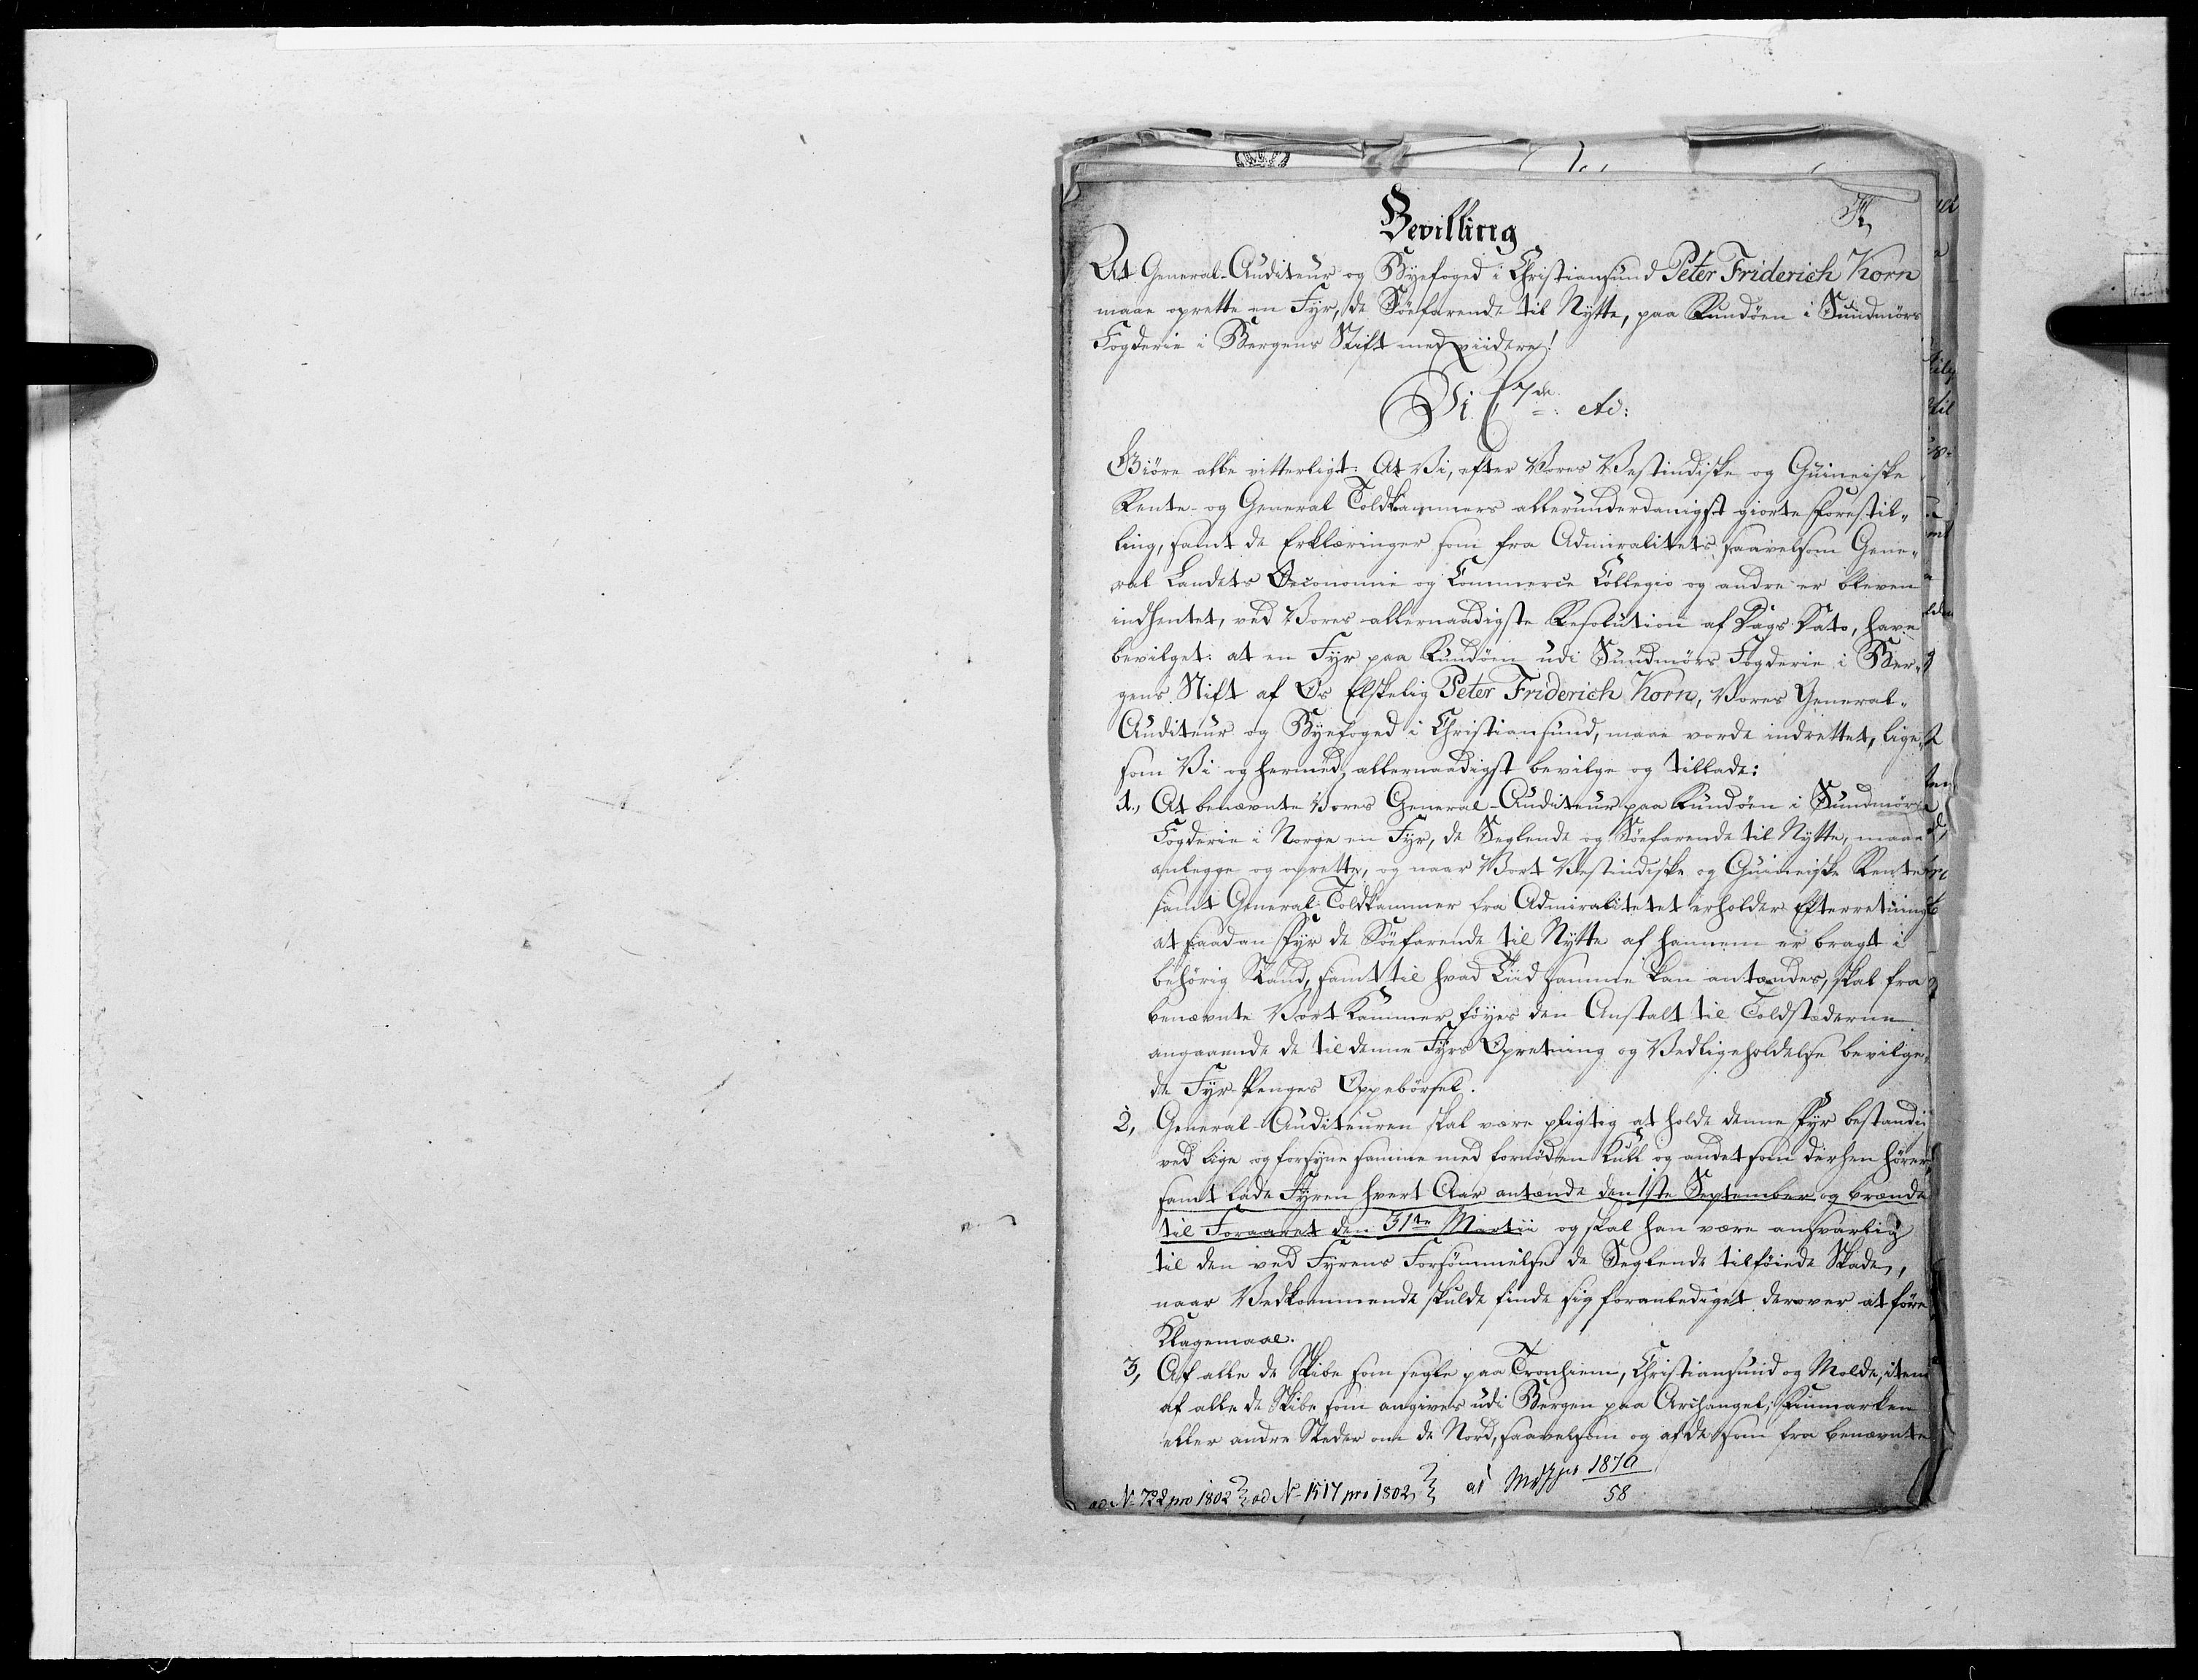 Bevilling
At General-Auditeur og Byefoged i Christiansund Peter Friderich Korn
maae oprette en Fyr, de Söefarende til Nytte, paa Rundöen i Sundmörs
Fogderie i Bergens Stift med viidere!
Vi C 7de etc:
Giöre alle vitterligt: At Vi, efter Vores Vestindiske og Guineiske
Rente- og General Toldkammers allerunderdanigst giorte Forestil-
ling, samt de Erklæringer som fra Admiralitets, saavelsom Gene-
ral Landets Oeconomie og Commerce Collegio og andre er bleven
indhentet, ved Vores allernaadigste Resolution af Dags Dato, have
bevilget: at en Fyr paa Rundöen udi Sundmörs Fogderie i Ber-
gens Stift af Os Elskelig Peter Friderich Korn, Vores General-
Auditeur og Byefoged i Christiansund, maae vorde indrettet, lige-
som Vi og hermed, allernaadigst bevilge og tillade:
1., At benævnte Vores General-Auditeur paa Rundöen i Sundmörs
Fogderie i Norge en Fyr, de Seglende og Söefarende til Nytte, maae
anlegge og oprette, og naar Vort Vestindiske og Guineiske Rente
samt General-Toldkammer fra Admiralitetet erholder Efterretning
at saadan Fyr de Söefarende til Nytte af hannem er bragt i
behörig Stand, samt til hvad Tiid samme kan antændes, skal fra
benævnte Vort Kammer föyes den Anstalt til Toldstæderne
angaaende de til denne Fyrs Opretning og Vedligeholdelse bevilge-
de Fyr-Penges Oppebörsel.
2, General-Auditeuren skal være pligtig at holde denne Fyr bestandi
ved lige og forsyne samme med fornöden Kull og andet som derhen hörer
samt lade Fyren hvert Aar antænde den 1ste September og brænde
til Foraaret den 31te Martii og skal han være ansvarlig
til den ved Fyrens Forsömmelse de Seglende tilföiede Skade,
naar Vedkommende skulde finde sig foranlediget derover at före
Klagemaal.
3, Af alle de Skibe som segle paa Tronhiem, Christiansund og Molde, item
af alle de Skibe som angives udi Bergen paa Archangel, Finmarken
eller andre Steder om de Nord, saavelsom og af de som fra benævnte
ad No 722 pro 1802 ad No 1517 pro 1802 1870
58